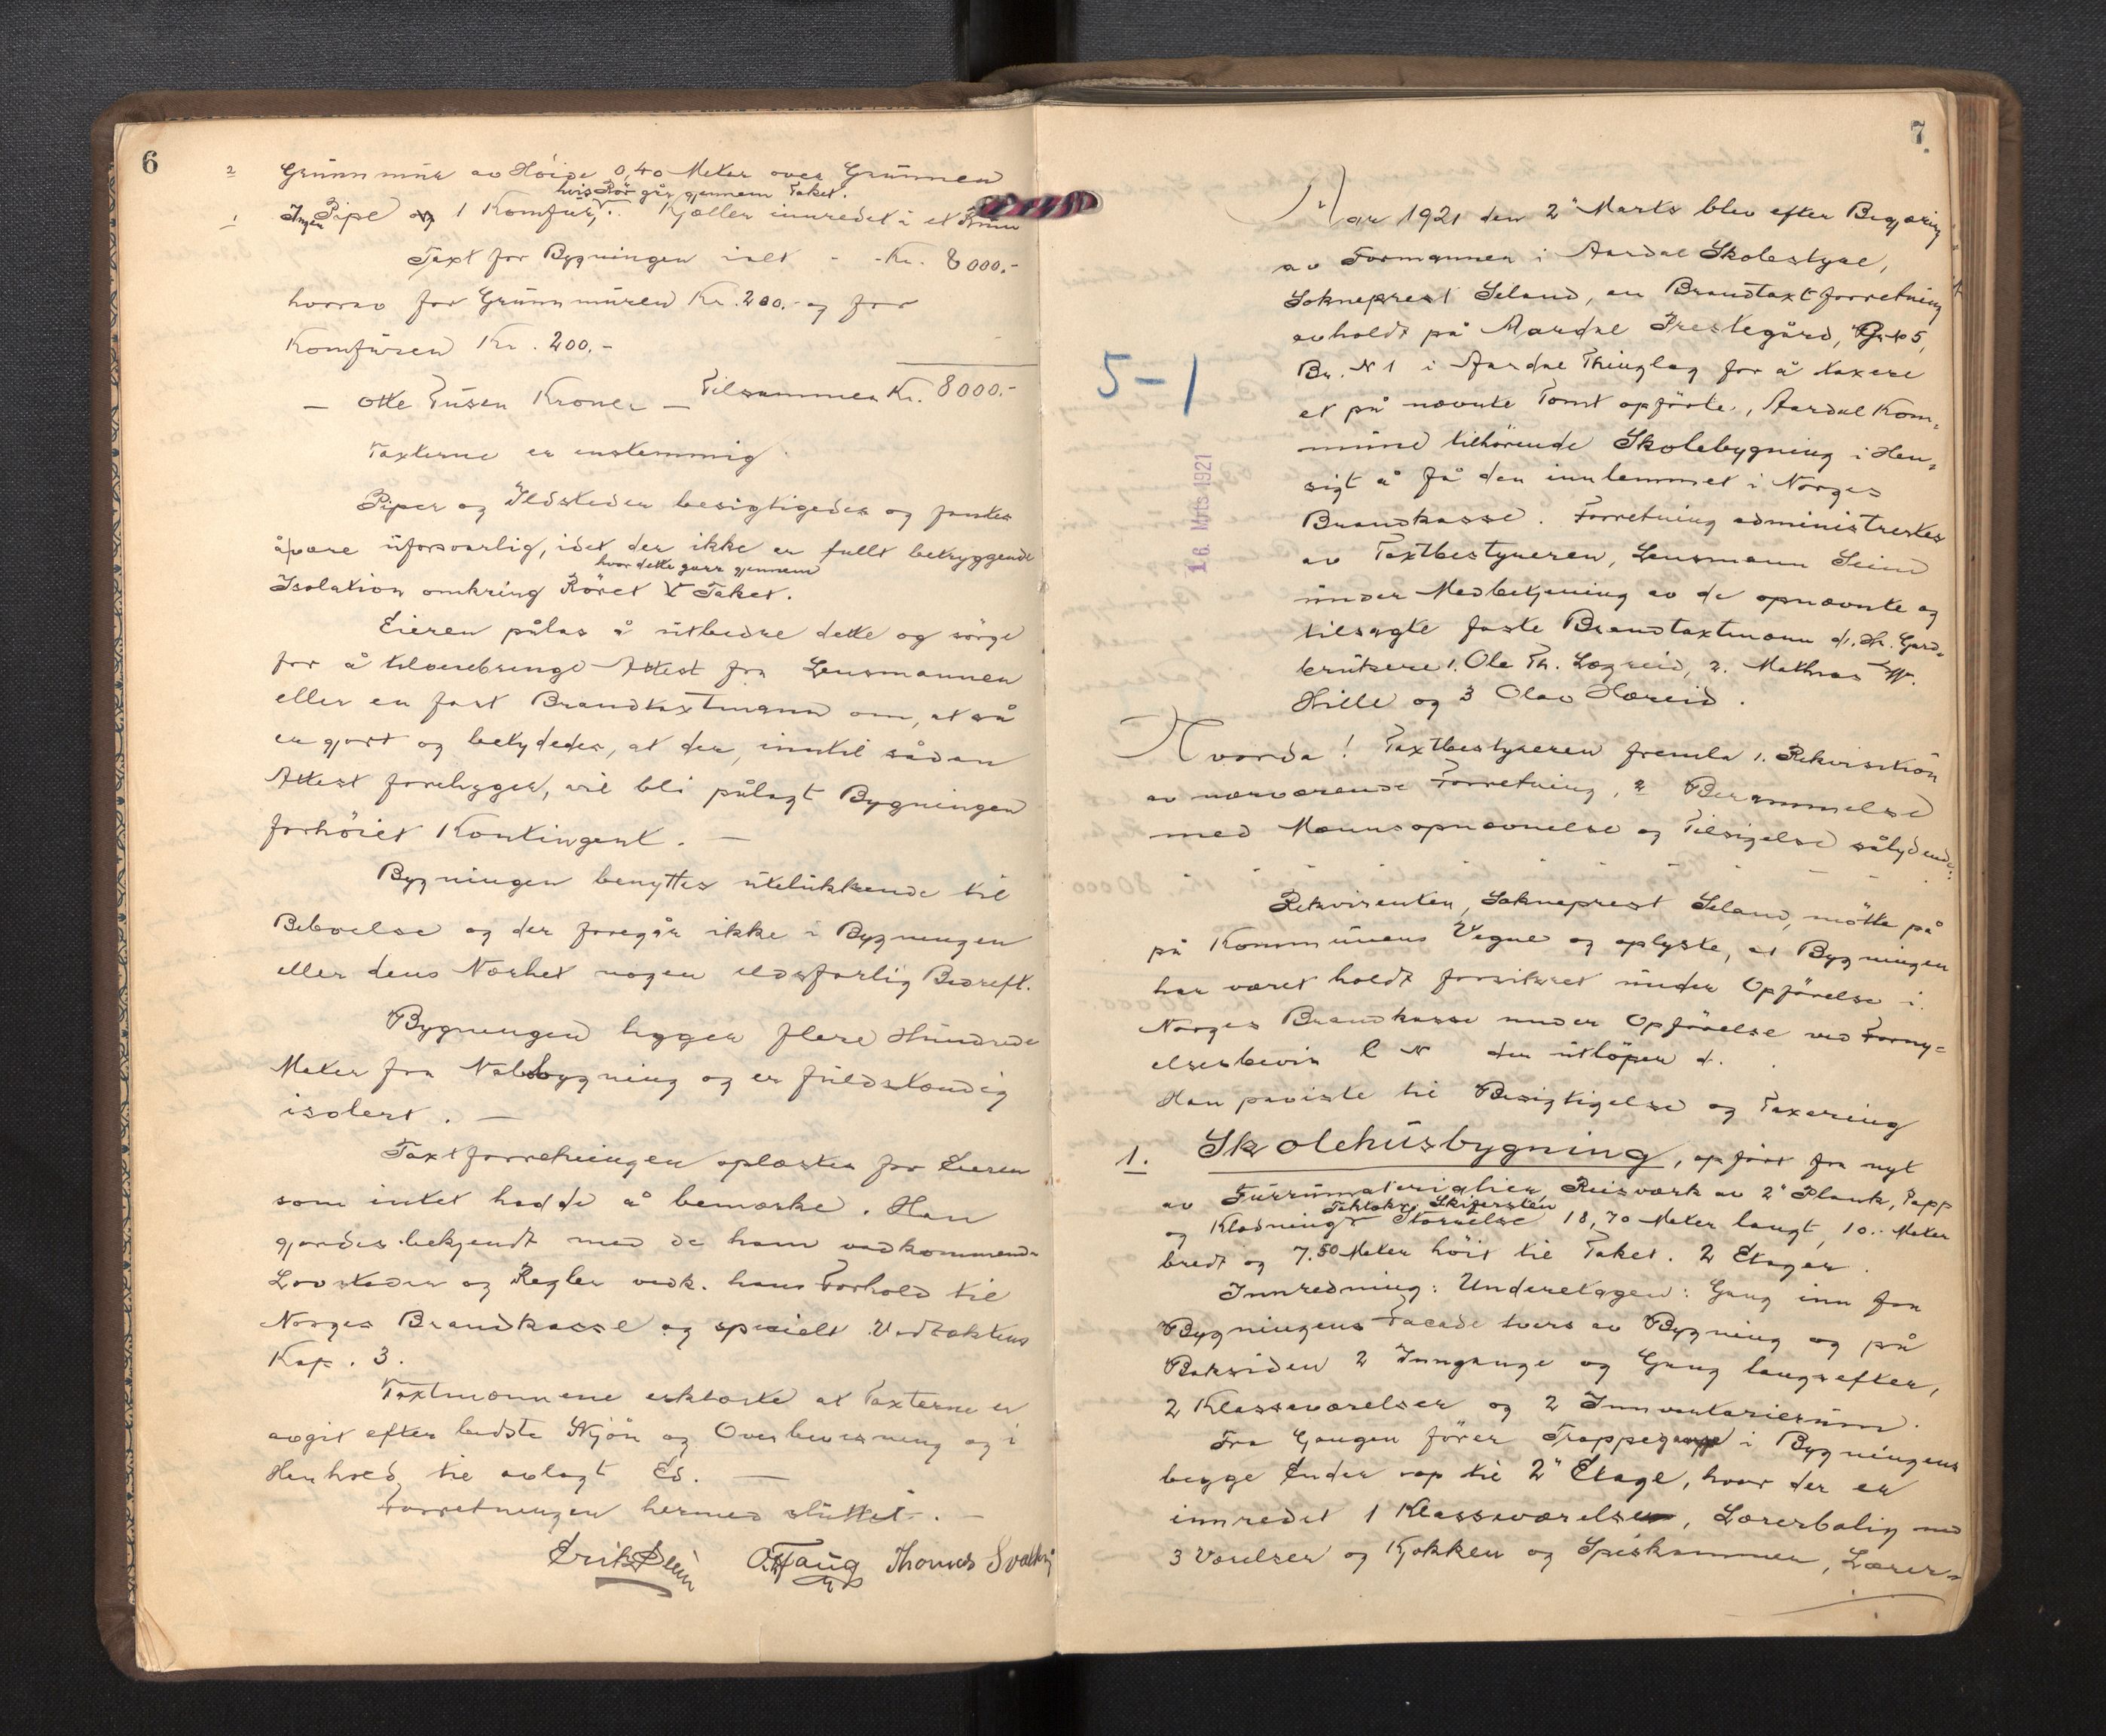 6
2 Grunnmur av Höide 0,40 Meter over Grunnen
hvis Rör går gjennem Taket.
1 Ingen Pipe og 1 Komfur, Kjæller innredet i et Rum
Taxt for Bygningen ialt - - Kr. 8000.-
hvorav for Grunnmuren Kr. 200.- og for
Komfuren Kr. 200.-
Tilsammen Kr. 8000.-
— Otte Tusen Kroner —
Taxterne er enstemmig.
Piper og Ildsteder besigtigedes og fantes
å være uforsvarlig, idet der ikke er fullt betryggende
hvor dette gaar gjennem
Isolation omkring Röret V Taket.
Eieren pålas å utbedre dette og sörge
for å tilveiebringe Attest fra Lensmannen
eller en fast Brandtaxtmann om, at så
er gjort og betydedes, at der, inntil sådan
Attest foreligger, vil bli pålagt Bygningen
forhöiet Kontingent. —
Bygningen benyttes utelukkende til
Beboelse og der foregår ikke i Bygningen
eller dens Nærhet nogen ildsfarlig Bedreft.
Bygningen ligger flere Hundrede
Meter fra Nabobygning og er fuldstændig
isolert. —
Taxtforretningen oplæstes for Eieren
som intet hadde å bemærke. Han
gjordes bekjendt med de ham vedkommende
Lovsteder og Regler vedk. hans Forhold til
Norges Brandkasse og specielt Vedtektens
Kap. 3.
Taxtmænnene erklærte at Taxterne er
avgit efter bedste Skjön og Overbevisning og i
Henhold til avlagt Ed. —
Forretningen hermed sluttet. —
Erik Seim O. Haug Thomas Svalheim
7.
År 1921 den 2" Marts blev efter Begjæring
av Formannen i Aardal Skolestyre,
Sokneprest Seland, en Brandtaxtforretning
avholdt på Aardal Prestegård, Gr. No 5,
Br. N 1 i Aardal Thinglag for å taxere
5-1
et på nævnte Tomt opförte, Aardal Kom-
mune tilhörende Skolebygning i Hen-
sigt å få den innlemmet i Norges
16. Mrts 1921
Brandkasse. Forretning administrertes
av Taxtbestyreren, Lensmann Seim
under Medbetjening av de opnævnte og
tilsagte faste Brandtaxtmænn d. Hr. Gard-
brukere 1. Ole Th. Lægreid, 2. Mathias W.
Hille og 3 Olav Hæreid.
Hvorda! Taxtbestyreren fremla 1. Rekvisition
av nærværende Forretning, 2 Berammelse
med Mannsopnævnelse og Tilsigelse sålydende:
Rekvirenten, Sokneprest Seland, mötte på
på Kommunens Vegne og oplyste, at Bygningen
har været holdt forsikret under Opförelse i
Norges Brandkasse under Opförelse ved Forny-
elsesbevis L N den utlöper d.
Han paviste til Besigtigelse og Taxering
1. Skolehusbygning, opfört fra nyt
av Furrumaterialier, Reisværk av 2" Plank, Papp
Taktekn. Skifersten
og Klædning. Störrelse 18,70 Meter langt, 10.- Meter
bredt og 7.50 Meter höit til Taket. 2 Etager.
Innredning: Underetagen: Gang inn fra
Bygningens Facade tvers av Bygning og på
Baksiden 2 Innganger og Gang langsefter,
2 Klasseværelser og 2 Innventarierum.
Fra Gangen förer Trappegange i Bygningens
begge Ender op til 2" Etage, hvor der er
innredet 1 Klasseværelse, Lærerbolig med
3 Værelser og Kjøkken og Spiskammer, Lærer-